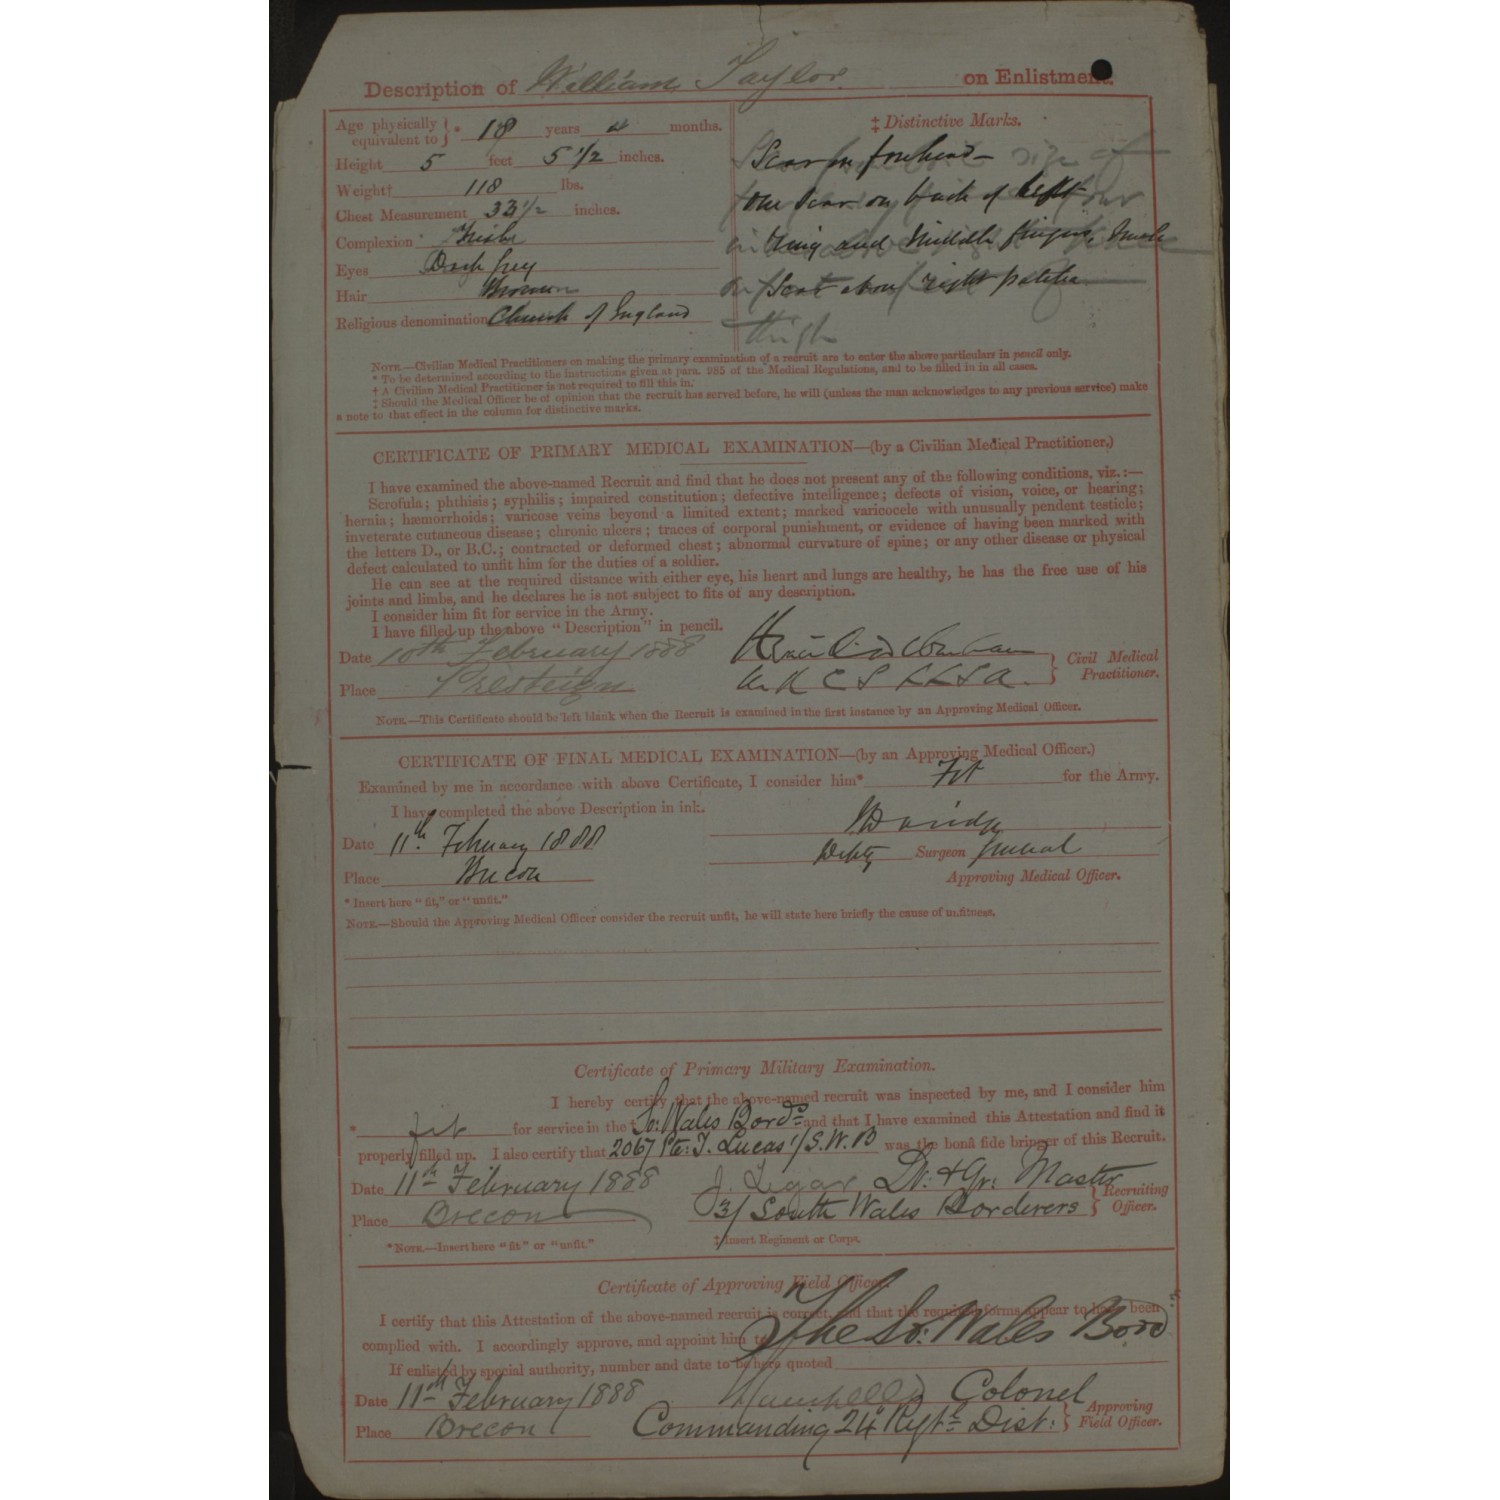 Description of William Taylor on Enlistment.
Age physically equivalent to }* 18 years months.
Height 5 feet 5 1/2 inches.
Weight† 118 lbs.
Chest Measurement 33 1/2 inches.
Complexion Fresh
Eyes Dark Grey
Hair Brown
Religious denomination Church of England
‡ Distinctive Marks.
Scar on forehead
one scar on back of left
ring and middle fingers, mole
scar above right patella
thigh
NOTE.—Civilian Medical Practitioners on making the primary examination of a recruit are to enter the above particulars in pencil only.
* To be determined according to the instructions given at para. 985 of the Medical Regulations, and to be filled in in all cases.
† A Civilian Medical Practitioner is not required to fill this in.
‡ Should the Medical Officer be of opinion that the recruit has served before, he will (unless the man acknowledges to any previous service) make
a note to that effect in the column for distinctive marks.
CERTIFICATE OF PRIMARY MEDICAL EXAMINATION—(by a Civilian Medical Practitioner.)
I have examined the above-named Recruit and find that he does not present any of the following conditions, viz.:—
Scrofula; phthisis; syphilis; impaired constitution; defective intelligence; defects of vision, voice, or hearing;
hernia; hæmorrhoids; varicose veins beyond a limited extent; marked varicocele with unusually pendent testicle;
inveterate cutaneous disease; chronic ulcers; traces of corporal punishment, or evidence of having been marked with
the letters D., or B.C.; contracted or deformed chest; abnormal curvature of spine; or any other disease or physical
defect calculated to unfit him for the duties of a soldier.
He can see at the required distance with either eye, his heart and lungs are healthy, he has the free use of his
joints and limbs, and he declares he is not subject to fits of any description.
I consider him fit for service in the Army.
I have filled up the above "Description" in pencil.
Date 10th February 1888
Place Presteign
Civil Medical Practitioner.
NOTE.—This Certificate should be left blank when the Recruit is examined in the first instance by an Approving Medical Officer.
CERTIFICATE OF FINAL MEDICAL EXAMINATION—(by an Approving Medical Officer.)
Examined by me in accordance with above Certificate, I consider him* Fit for the Army.
I have completed the above Description in ink.
Date 11th February 1888
Place Brecon
Deputy Surgeon General
Approving Medical Officer.
* Insert here "fit," or "unfit."
NOTE.—Should the Approving Medical Officer consider the recruit unfit, he will state here briefly the cause of unfitness.
Certificate of Primary Military Examination.
I hereby certify that the above-named recruit was inspected by me, and I consider him
* fit for service in the ‡ So: Wales Bordrs and that I have examined this Attestation and find it
properly filled up. I also certify that 2067 Pte: T. Lucas 1/S.W.B was the bonâ fide bringer of this Recruit.
Date 11th February 1888
Place Brecon
Lt: & Qr: Master
3/ South Wales Borderers
Recruiting Officer.
*NOTE.—Insert here "fit" or "unfit."
‡ Insert Regiment or Corps.
Certificate of Approving Field Officer.
I certify that this Attestation of the above-named recruit is correct, and that the required forms appear to have been
complied with. I accordingly approve, and appoint him to The So: Wales Bord
If enlisted by special authority, number and date to be here quoted
Date 11th February 1888
Place Brecon
Colonel
Commanding 24 Regtl Dist:
Approving Field Officer.